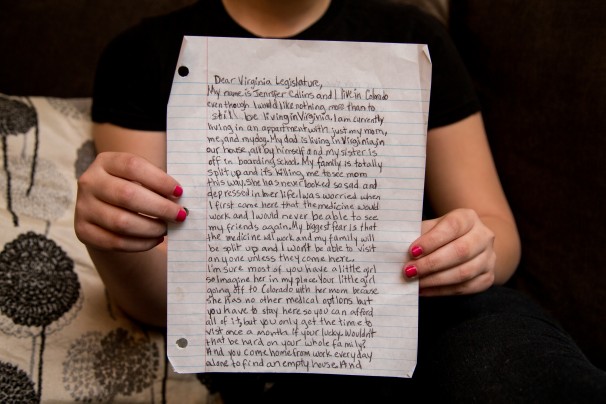 Dear Virginia Legislature,
My name is Jennifer Collins and I live in Colorado
even though I would like nothing more than to
still be living in Virginia. I am currently
living in an appartment with just my mom,
me, and my dog. My dad is living in Virginia, in
our house, all by himself and my sister is
off in boarding school. My family is totally
split up and it's killing me to see mom
this way. She has never looked so sad and
depressed in her life. I was worried when
I first came here that the medicine would
work and I would never be able to see
my friends again. My biggest fear is that
the medicine will work and my family will
be split up and I won't be able to visit
anyone unless they come here.
I'm sure most of you have a little girl
so Imagine her in my place. Your little girl
going off to Colorado with her mom because
she has no other medical options but
you have to stay here so you can afford
all of it, but you only get the time to
visit once a month if your lucky. Wouldn't
that be hard on your whole family?
And you come home from work everyday
alone to find an empty house. And